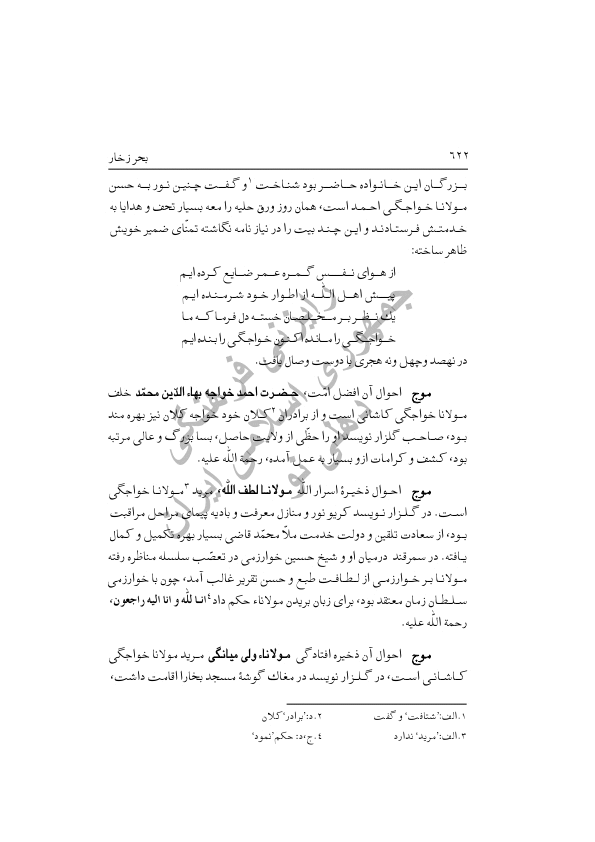 ٦٢٢
بحر زخار
بزرگان این خانواده حاضر بود شناخت١ و گفت چنین نور به حسن
مولانا خواجگی احمد است، همان روز ورق حلیه را معه بسیار تحف و هدایا به
خدمتش فرستادند و این چند بیت را در نیاز نامه نگاشته تمنّای ضمیر خویش
ظاهر ساخته:
از هوای نفس گمره عمر ضایع کرده ایم
پیش اهل الله از اطوار خود شرمنده ایم
یك نظر بر مخلصان خسته دل فرما که ما
خواجگی را مانده اکنون خواجگی را بنده ایم
در نهصد وچهل ونه هجری با دوست وصال یافت.
موج احوال آن افضل امّت، حضرت احمد خواجه بهاء الدّین محمّد خلف
مولانا خواجگی کاشانی است و از برادران٢ کلان خود خواجه کلان نیز بهره مند
بود، صاحب گلزار نویسد او را حظّی از ولایت حاصل، بسا بزرگ و عالی مرتبه
بود، کشف و کرامات ازو بسیار به عمل آمده، رحمة الله علیه.
موج احوال ذخیرۀ اسرار الله مولانا لطف الله، مرید٣ مولانا خواجگی
است. در گلزار نویسد کریو نور و منازل معرفت و بادیه پیمای مراحل مراقبت
بود، از سعادت تلقین و دولت خدمت ملاّ محمّد قاضی بسیار بهره تکمیل و کمال
یافته. در سمرقند درمیان او و شیخ حسین خوارزمی در تعصّب سلسله مناظره رفته
مولانا بر خوارزمی از لطافت طبع و حسن تقریر غالب آمد، چون با خوارزمی
سلطان زمان معتقد بود، برای زبان بریدن مولاناء حکم داد٤ انا لله و انا الیه راجعون،
رحمة الله علیه.
موج احوال آن ذخیره افتادگی مولاناء ولی میانگی مرید مولانا خواجگی
کاشانی است، در گلزار نویسد در مغاك گوشۀ مسجد بخارا اقامت داشت،
١.الف:'شتافت' و گفت
٢.د:'برادر' کلان
٣.الف:'مرید' ندارد
٤.ج،د: حکم 'نمود'